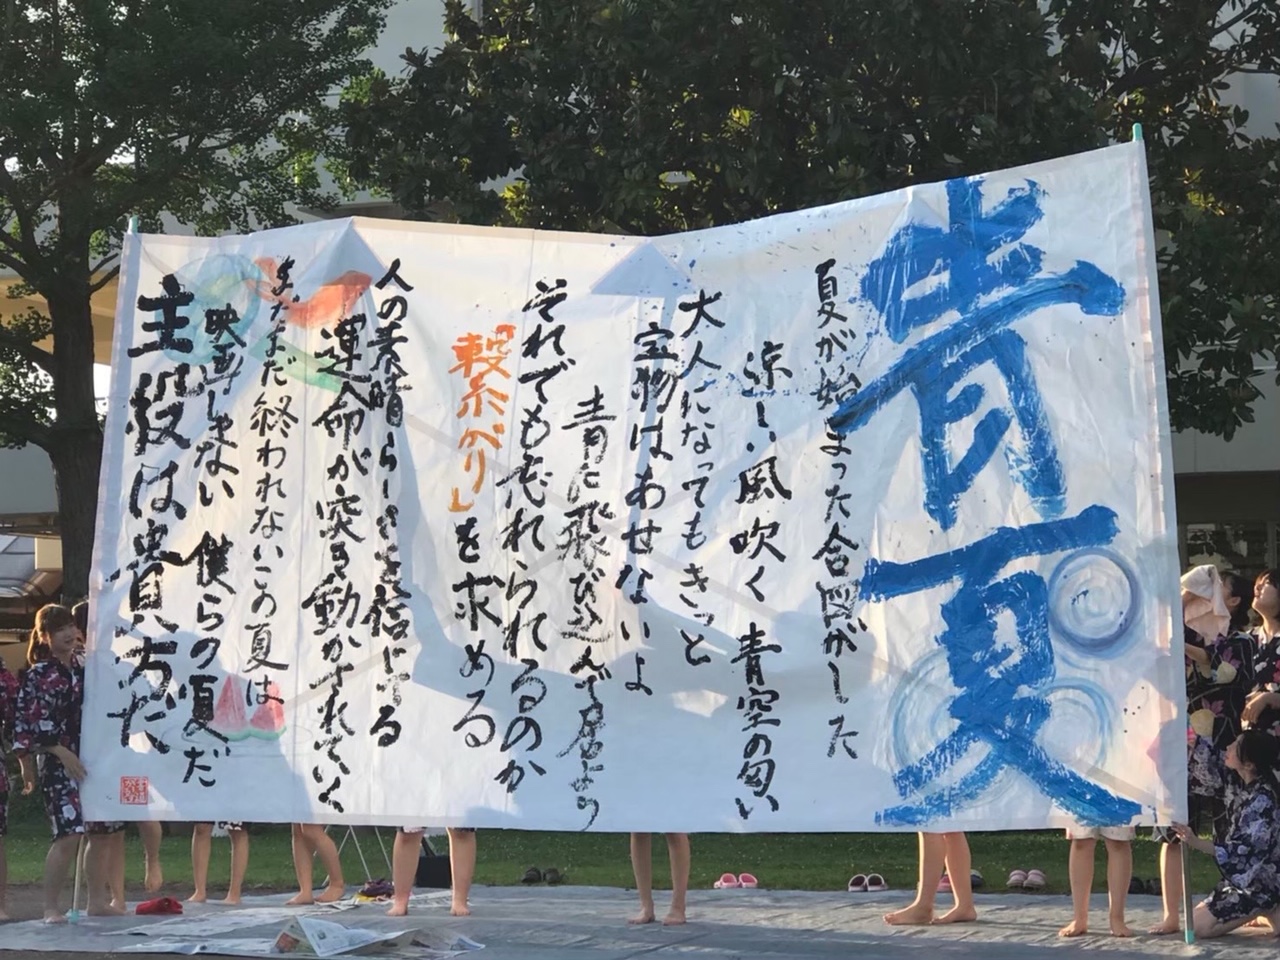 青夏
夏が始まった合図がした
涼しい風吹く 青空の匂い
大人になってもきっと
宝物はあせないよ
青に飛び込んで居よう
それでも忘れられるのか
「繋がり」を求める
人の素晴らしさを信じてる
運命が突き動かされていく
まだまだ終われないこの夏は
映画じゃない 僕らの夏だ
主役は貴方だ